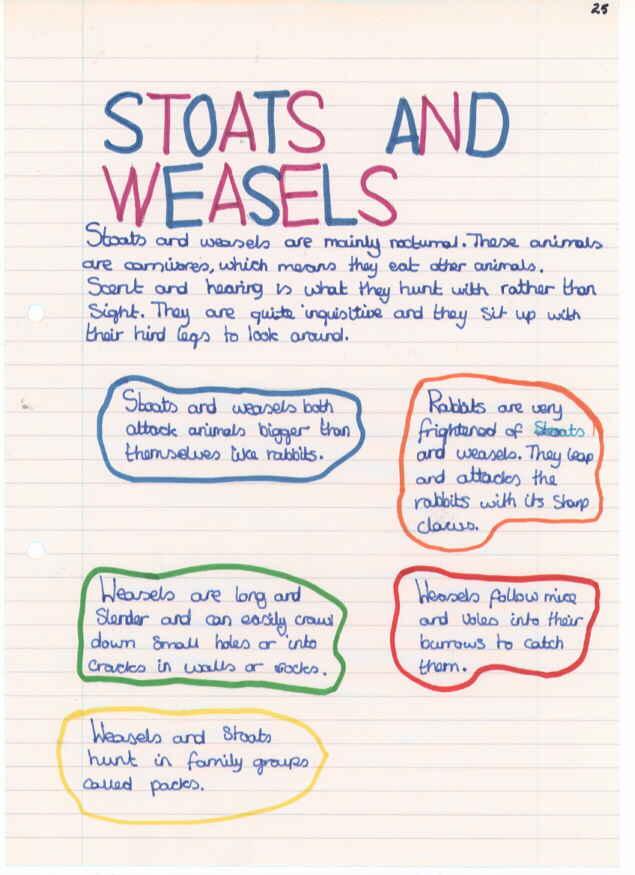 25
STOATS AND
WEASELS
Stoats and weasels are mainly nocturnal. These animals
are carnivores, which means they eat other animals.
Scent and hearing is what they hunt with rather than
Sight. They are quite inquisitive and they sit up with
their hind legs to look around.
Stoats and weasels both
attack animals bigger than
themselves like rabbits.
Rabbits are very
frightened of Stoats
and weasels. They leap
and attacks the
rabbits with its sharp
claws.
Weasels are long and
Slender and can easily crawl
down small holes or into
cracks in walls or rocks.
Weasels follow mice
and Voles into their
burrows to catch
them.
Weasels and Stoats
hunt in family groups
called packs.